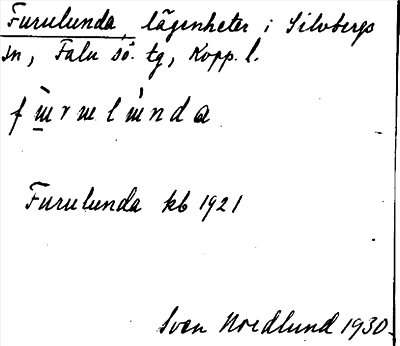 Furulunda, lägenheter i Silvbergs
sn, Falu sö. tg, Kopp. l.
fɯ̀rɯlɯ́nda
Furulunda kb 1921
Sven Nordlund 1930.